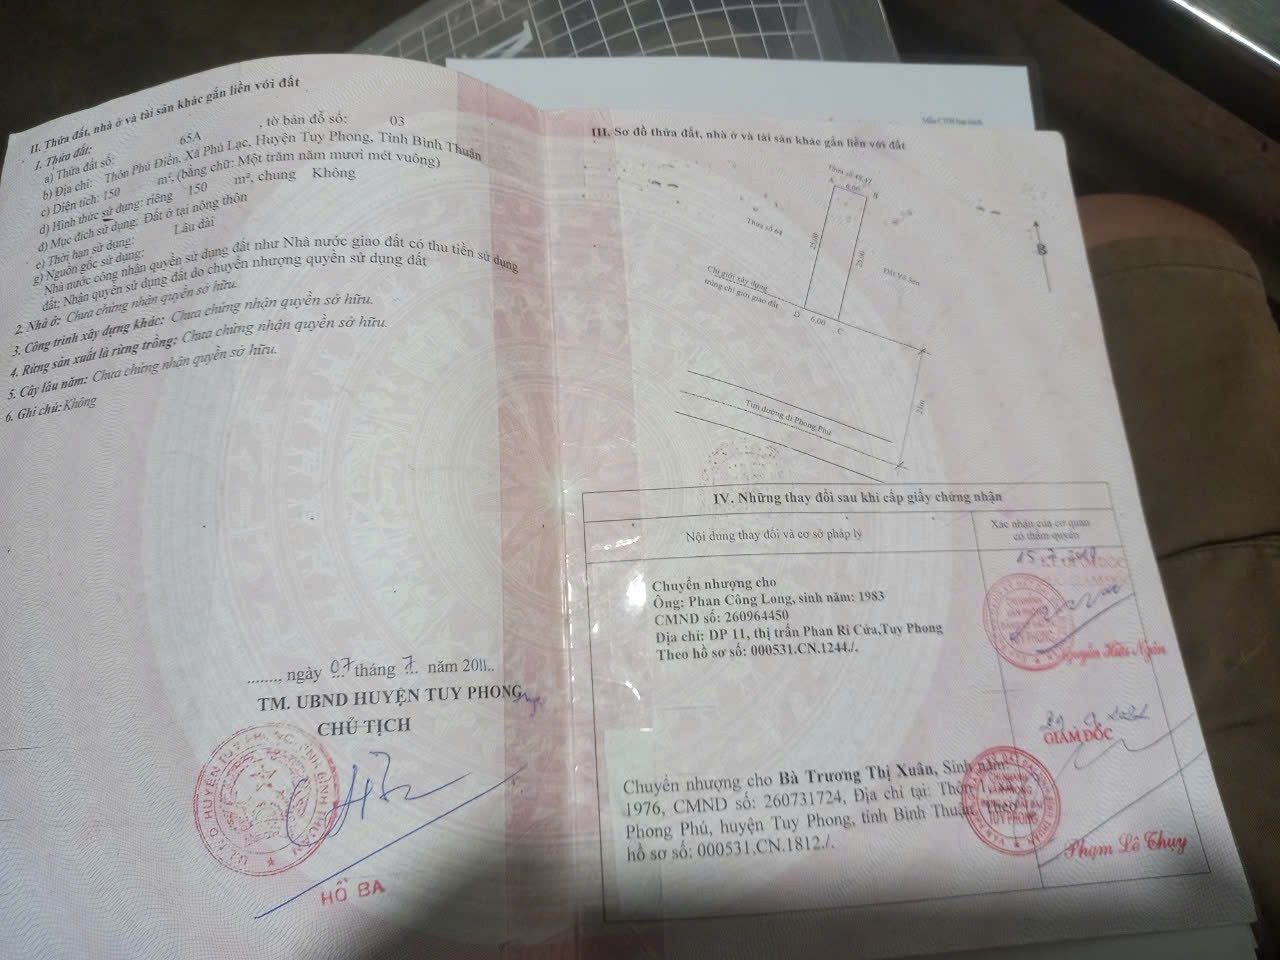 II. Thửa đất, nhà ở và tài sản khác gắn liền với đất
1. Thửa đất:
a) Thửa đất số: 65A , tờ bản đồ số: 03
b) Địa chỉ: Thôn Phú Điền, Xã Phú Lạc, Huyện Tuy Phong, Tỉnh Bình Thuận
c) Diện tích: 150 m², (bằng chữ: Một trăm năm mươi mét vuông)
d) Hình thức sử dụng: riêng 150 m², chung Không
đ) Mục đích sử dụng: Đất ở tại nông thôn
e) Thời hạn sử dụng: Lâu dài
g) Nguồn gốc sử dụng:
Nhà nước công nhận quyền sử dụng đất như Nhà nước giao đất có thu tiền sử dụng
đất; Nhận quyền sử dụng đất do chuyển nhượng quyền sử dụng đất
2. Nhà ở: Chưa chứng nhận quyền sở hữu.
3. Công trình xây dựng khác: Chưa chứng nhận quyền sở hữu.
4. Rừng sản xuất là rừng trồng: Chưa chứng nhận quyền sở hữu.
5. Cây lâu năm: Chưa chứng nhận quyền sở hữu.
6. Ghi chú: Không
........, ngày 07 tháng 7 năm 2011..
TM. UBND HUYỆN TUY PHONG
CHỦ TỊCH
HỒ BA
III. Sơ đồ thửa đất, nhà ở và tài sản khác gắn liền với đất
Thửa số 48,47
A 6,00 B
Thửa số 64
25,00
25,00
B
Đất Võ Sen
Chỉ giới xây dựng
trùng chỉ giới giao đất
D 6,00 C
21m
Tim đường đi Phong Phú
IV. Những thay đổi sau khi cấp giấy chứng nhận
Nội dung thay đổi và cơ sở pháp lý
Xác nhận của cơ quan
có thẩm quyền
Chuyển nhượng cho
Ông: Phan Công Long, sinh năm: 1983
CMND số: 260964450
Địa chỉ: DP 11, thị trấn Phan Rí Cửa,Tuy Phong
Theo hồ sơ số: 000531.CN.1244./.
Nguyễn Hữu Ngân
GIÁM ĐỐC
Chuyển nhượng cho Bà Trương Thị Xuân, Sinh năm:
1976, CMND số: 260731724, Địa chỉ tại: Thôn 1, xã
Phong Phú, huyện Tuy Phong, tỉnh Bình Thuận. Theo
hồ sơ số: 000531.CN.1812./.
Phạm Lê Thụy